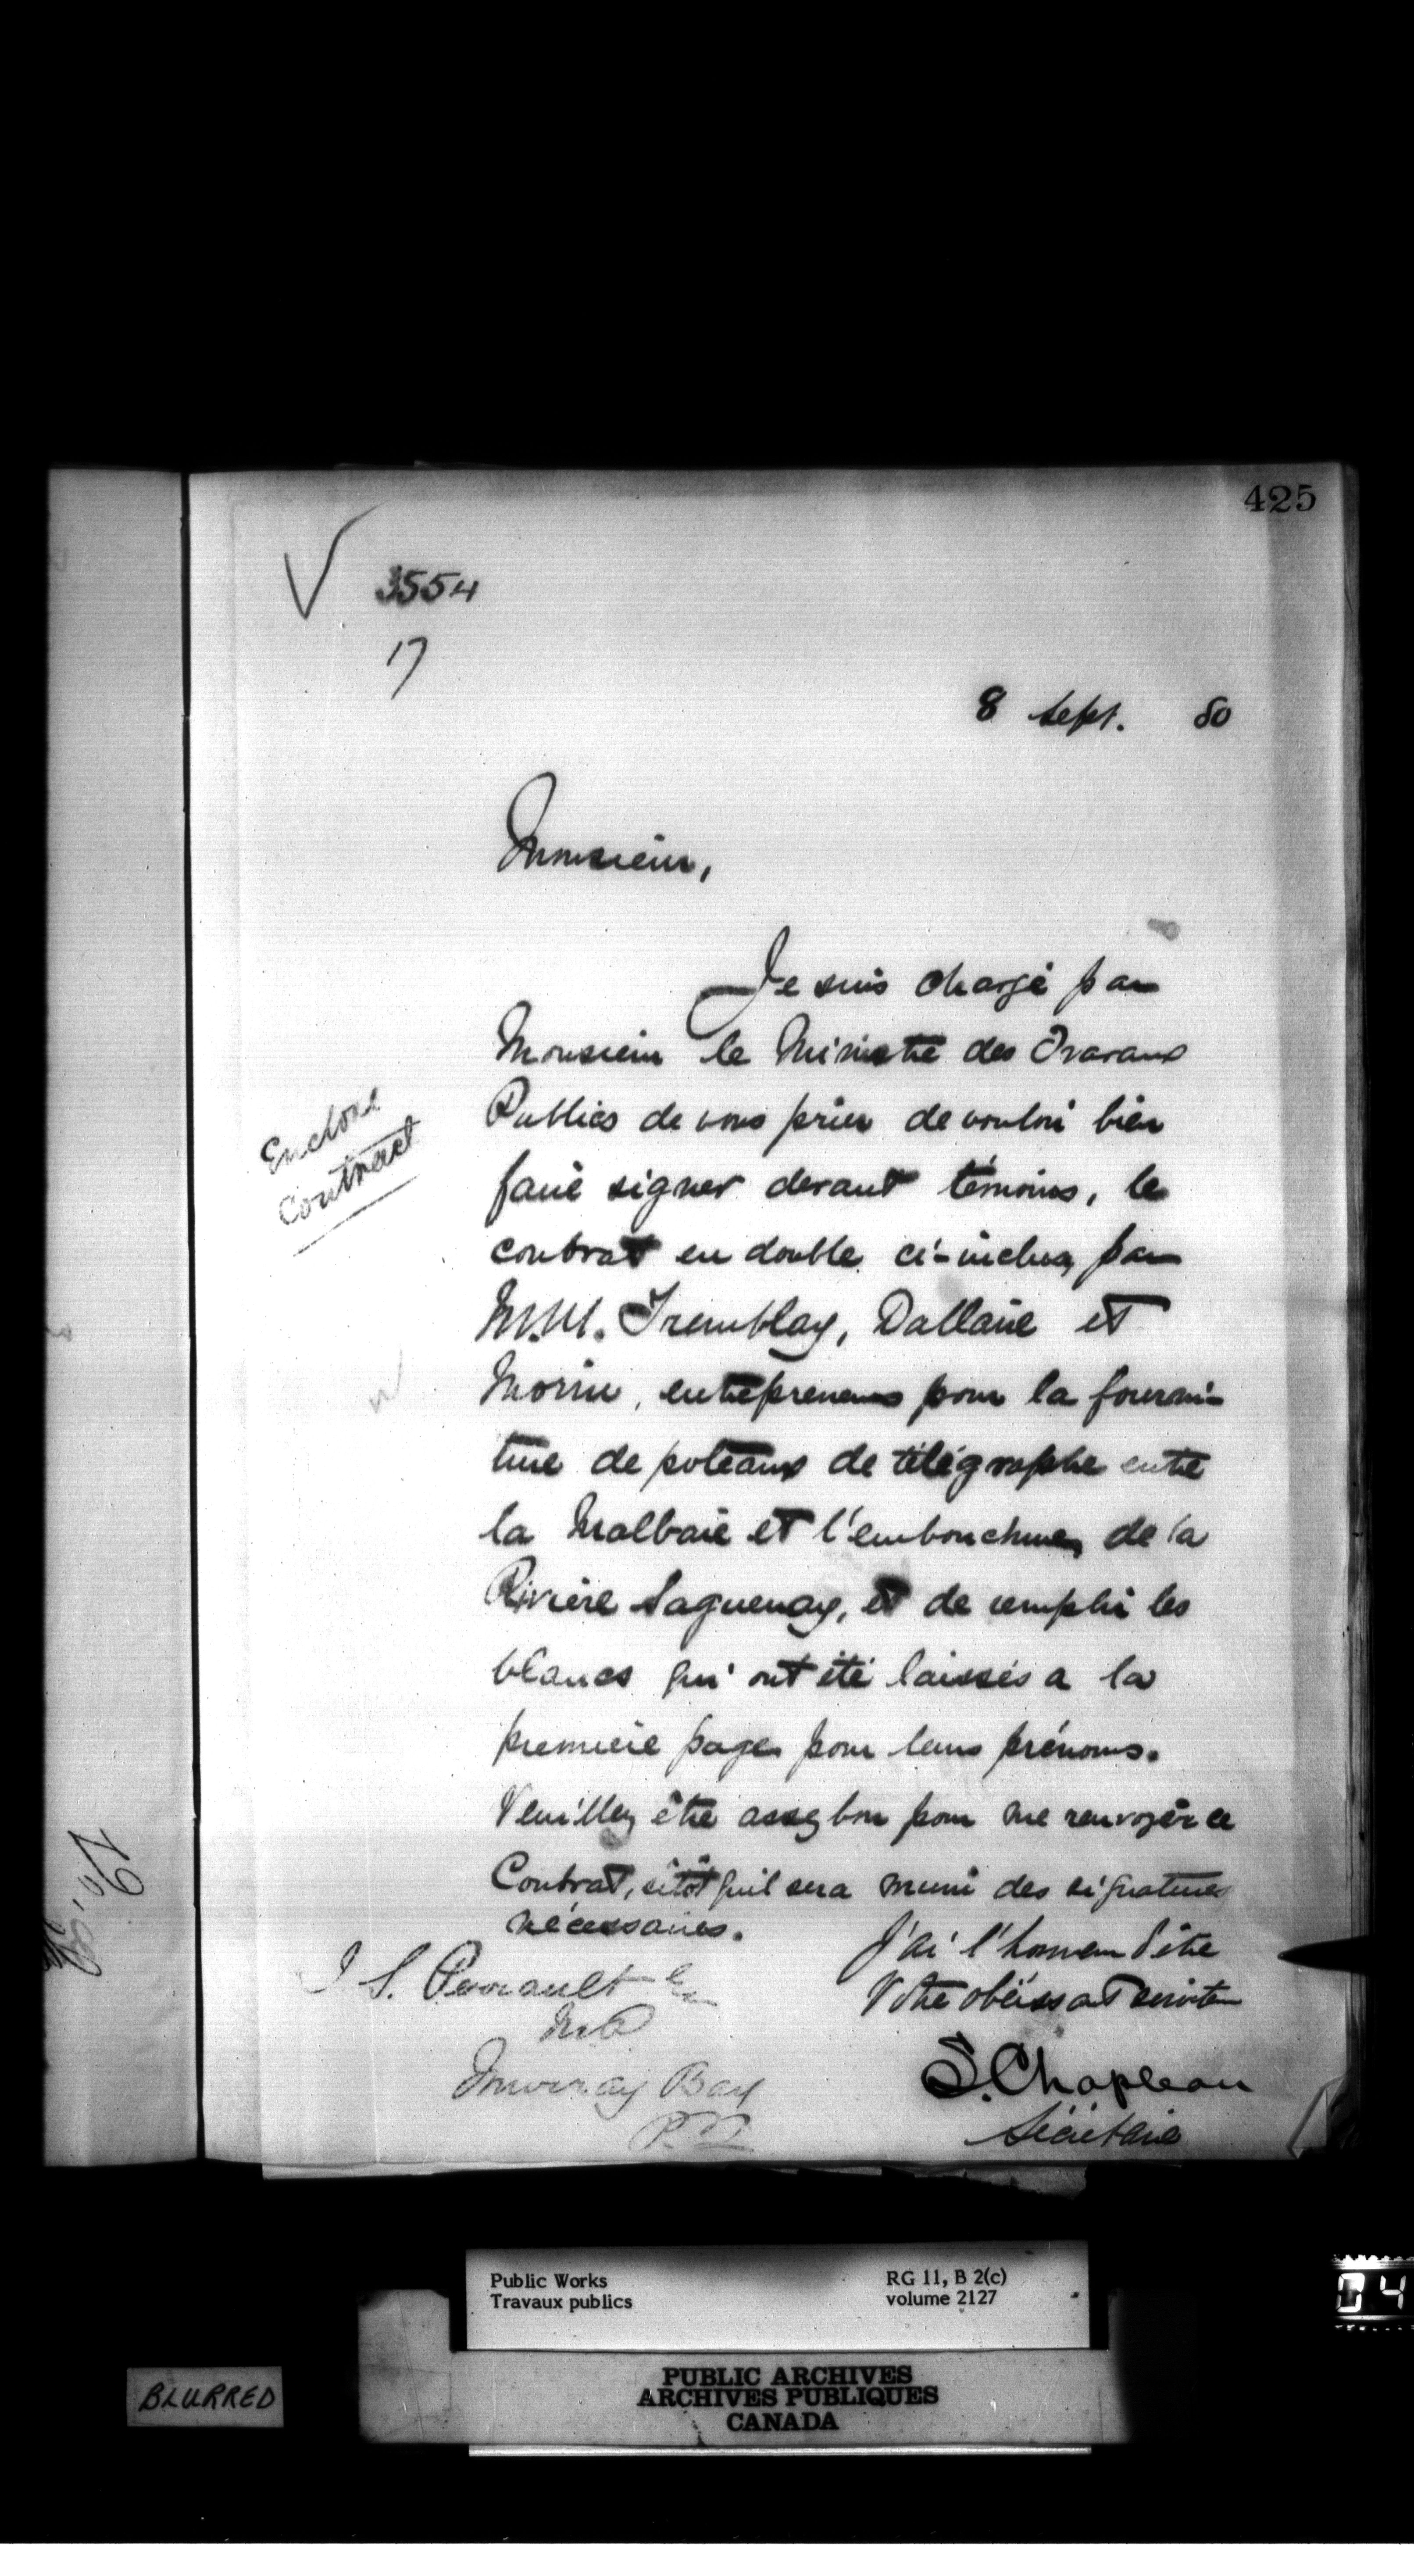 425
3554
17
8 Sept. 80
Monsieur,
Je suis chargé par
Monsieur le Ministre des Travaux
Publics de vous prier de vouloir bien
faire signer devant témoins, le
Enclose
Contract
contrat en double ci-inclus, par
M.M. Tremblay, Dallaire et
Morin, entrepreneurs pour la fourni-
ture de poteaux de télégraphe entre
la Malbaie et l'embouchure, de la
Rivière Saguenay, et de remplir les
blancs qui ont été laissés a la
première page pour leurs prénoms.
Veuillez être assez bon pour me renvoyer ce
Contrat, sitôt qu'il sera muni des signatures
nécessaires.
J'ai l'honneur d'être
Votre obéissant serviteur
S. Chapleau
Sécrétaire
J S. Perrault
M.P
Murray Bay
P.Q
Public Works
Travaux publics
RG 11, B 2(c)
volume 2127
PUBLIC ARCHIVES
ARCHIVES PUBLIQUES
CANADA
BLURRED
04